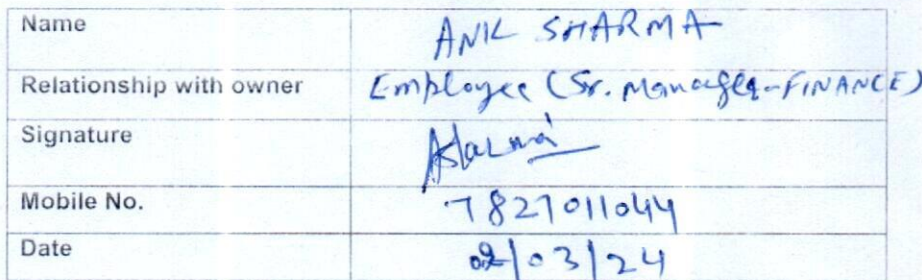 Name ANIL SHARMA
Relationship with owner Employee (Sr. Manager-FINANCE)
Signature ASharma
Mobile No. 7827011044
Date 02/03/24